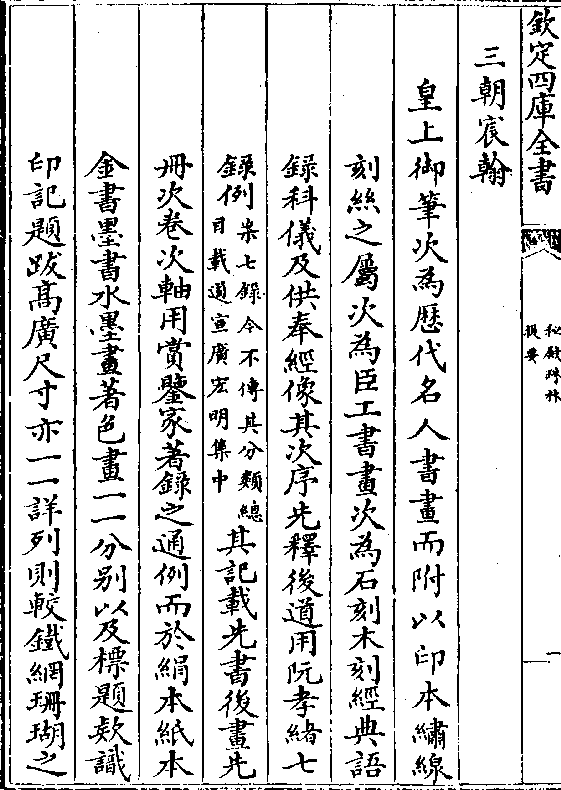 欽定四庫全書
秘殿珠林
提要
一
三朝宸翰
皇上御筆次為歷代名人書畫而附以印本繡線
刻絲之屬次為臣工書畫次為石刻木刻經典語
録科儀及供奉經像其次序先釋後道用阮孝緒七
録例
案七録今不傳其分類總
目載道宣廣宏明集中
其記載先書後畫先
冊次卷次軸用賞鑒家著録之通例而於絹本紙本
金書墨書水墨畫著色畫一一分别以及標題欵識
印記題跋髙廣尺寸亦一一詳列則較鐵網珊瑚之